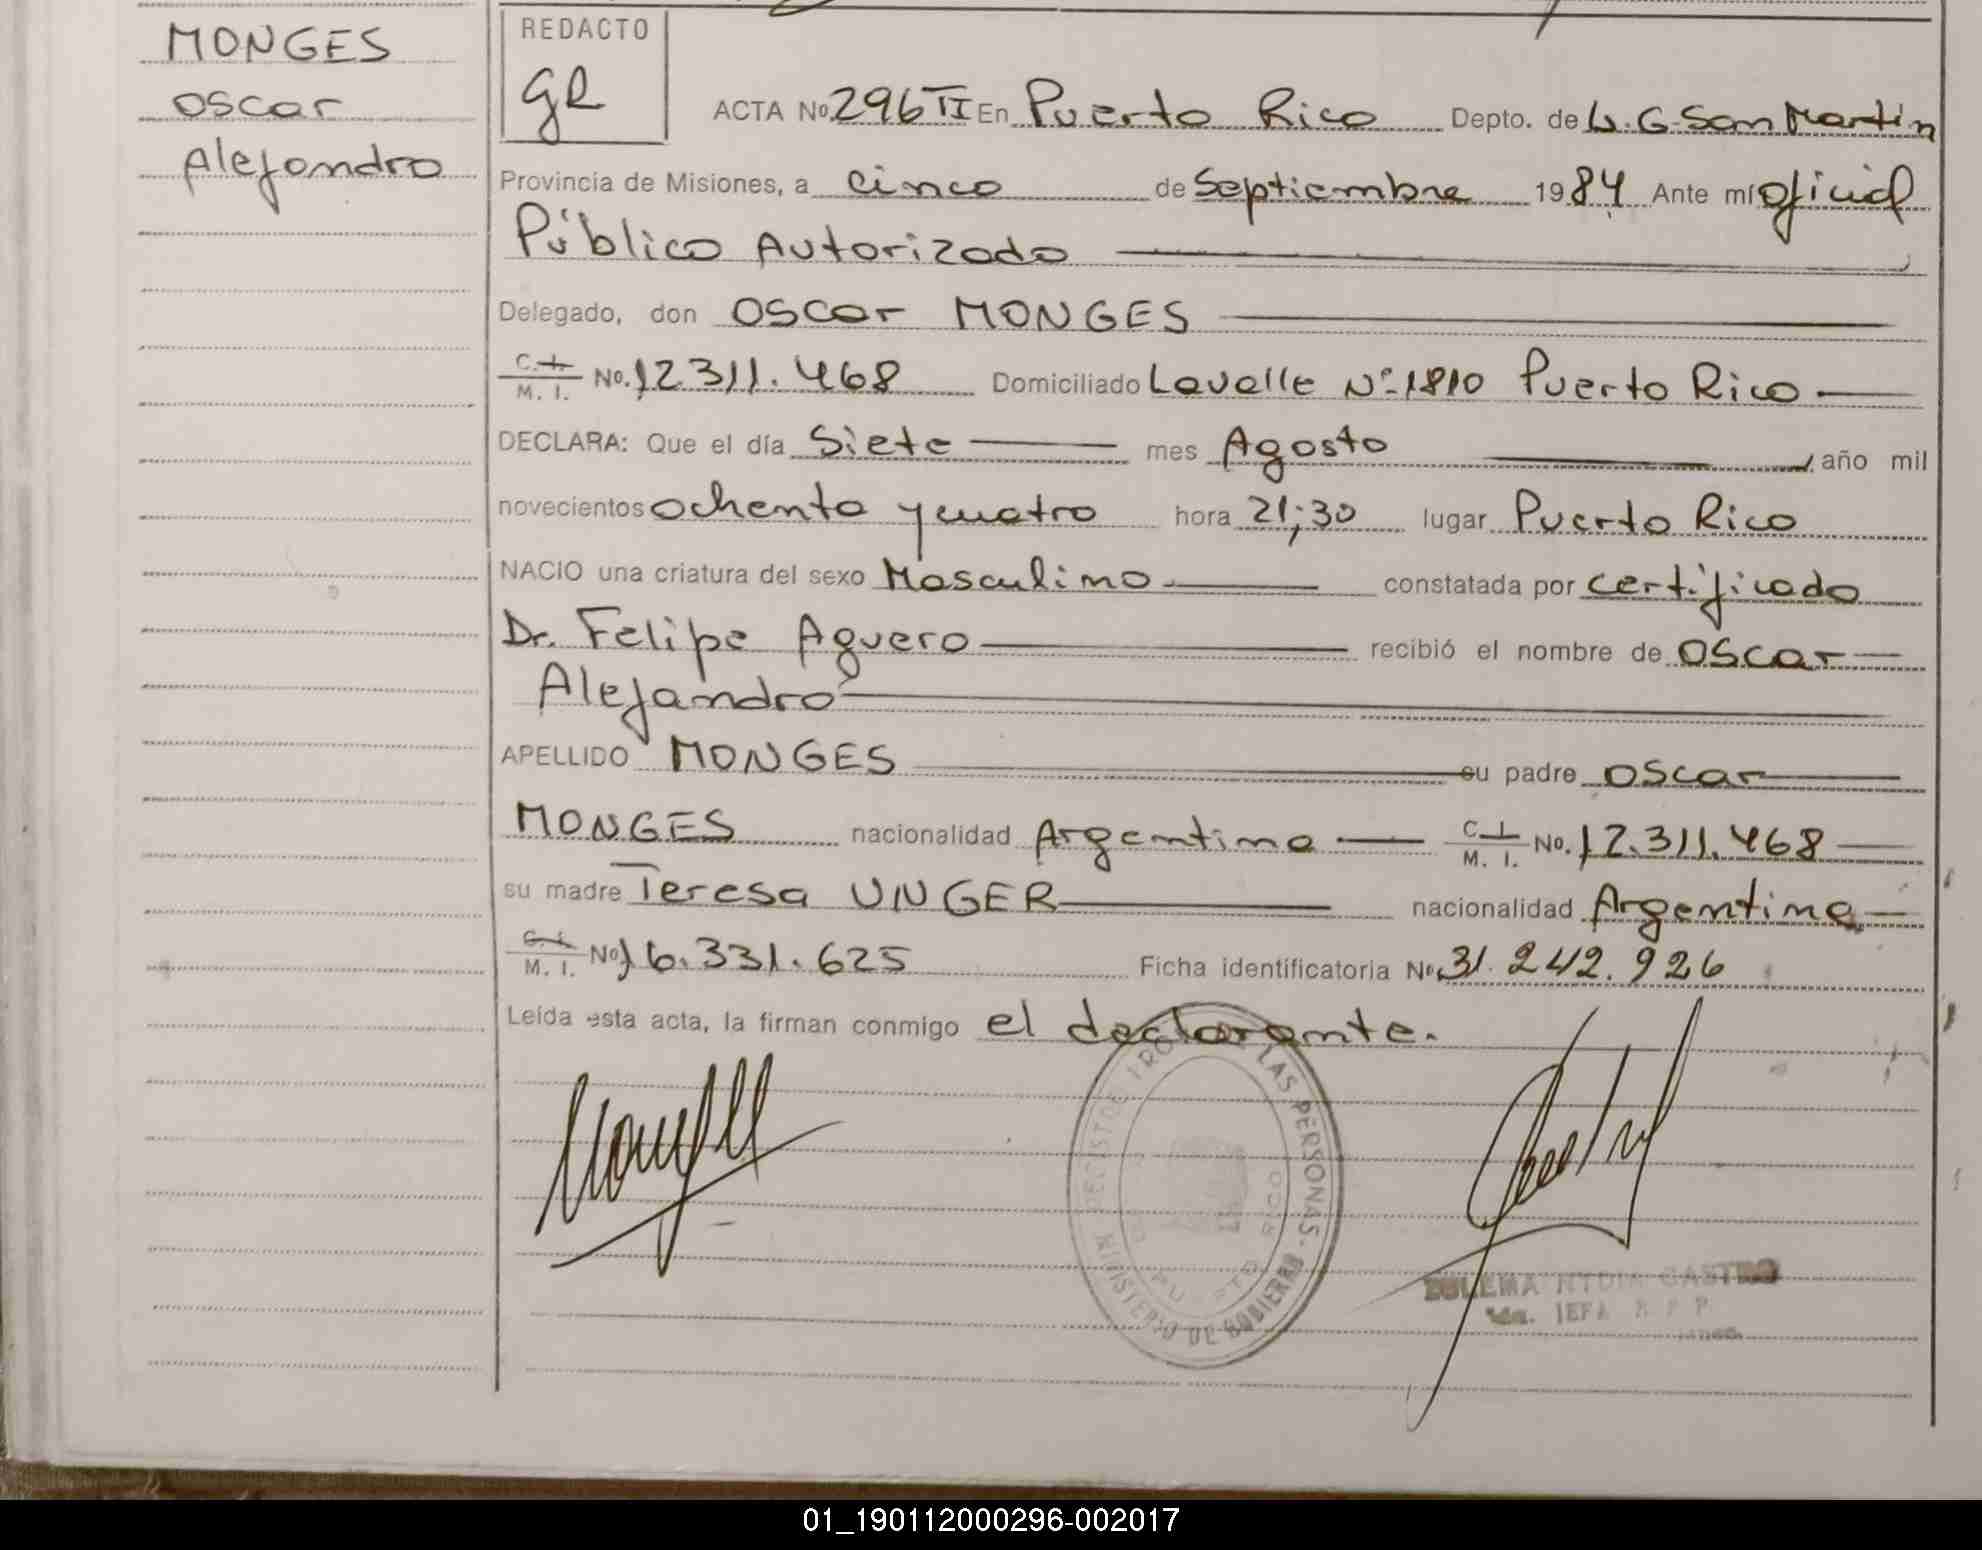 MONGES
Oscar
Alejandro
REDACTO
GR
ACTA No. 296 TI En Puerto Rico Depto. de L. G. San Martin
Provincia de Misiones, a cinco de Septiembre 1984 Ante mí oficial
Público Autorizado
Delegado, don Oscar MONGES
C. I. / M. I. No. 12.311.468 Domiciliado Lavalle Nº 1810 Puerto Rico
DECLARA: Que el día Siete mes Agosto, año mil
novecientos ochenta y cuatro hora 21;30 lugar Puerto Rico
NACIO una criatura del sexo Masculino constatada por certificado
Dr. Felipe Aguero recibió el nombre de Oscar
Alejandro
APELLIDO MONGES su padre Oscar
MONGES nacionalidad Argentino C. I. / M. I. No. 12.311.468
su madre Teresa UNGER nacionalidad Argentina
C. I. / M. I. No. 16.331.625 Ficha identificatoria No. 31.242.926
Leída esta acta, la firman conmigo el declarante.
LAS PERSONAS.
MINISTERIO DE GOBIERNO
RICO
CASTRO
JEFA
01_190112000296-002017